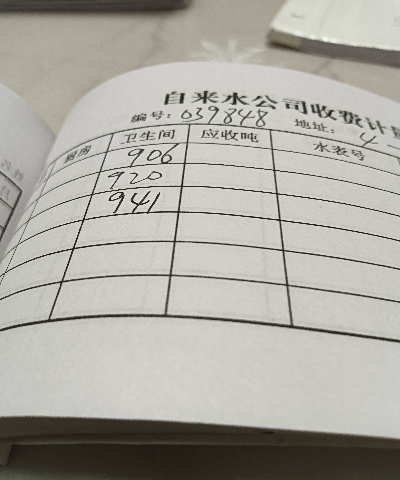 自来水公司收费计
编号: 039848 地址: 4
厨房 卫生间 应收吨 水表号
906
920
941